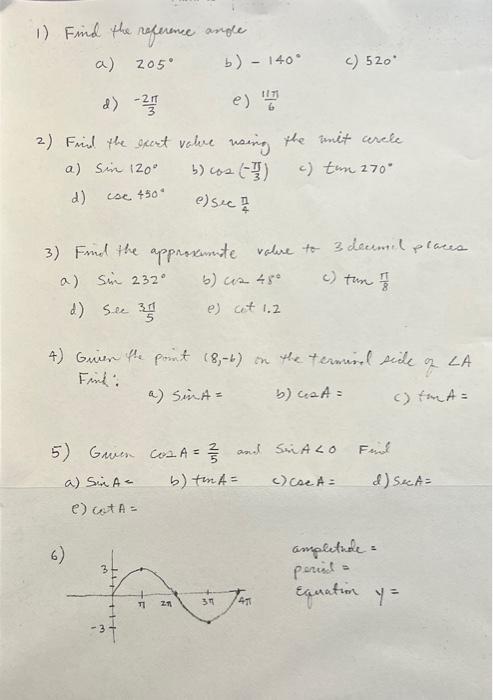 1) Find the reference angle
a) 205° b) - 140° c) 520°
d) -2π/3 e) 11π/6
2) Find the exact value using the unit circle
a) Sin 120° b) cos (-π/3) c) tan 270°
d) csc 450° e) sec π/4
3) Find the approximate value to 3 decimal places
a) Sin 232° b) cos 48° c) tan π/8
d) Sec 3π/5 e) cot 1.2
4) Given the point (8,-6) on the terminal side of ∠A
Find:
a) Sin A = b) cos A = c) tan A =
5) Given cos A = 2/5 and Sin A < 0 Find
a) Sin A = b) tan A = c) csc A = d) Sec A =
e) cot A =
6)
amplitude =
period =
Equation y =
3
π 2π 3π 4π
-3